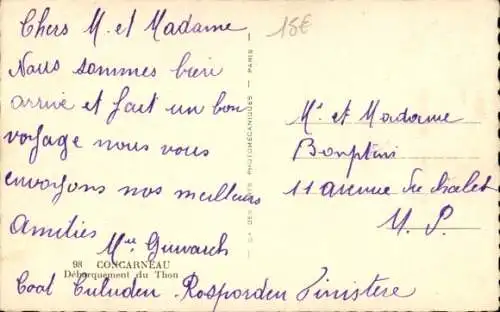 Chers M. et Madame
Nous sommes bien
arrivé et fait un bon
voyage nous vous
envoyons nos meilleurs
Amitiés
Mlle
98 CONCARNEAU
Débarquement du Thon
Coat Culuden . Rosporden Finistère
PHOTOMÉCANIQUES — PARIS
15€
Mr et Madame
11 avenue du chalet